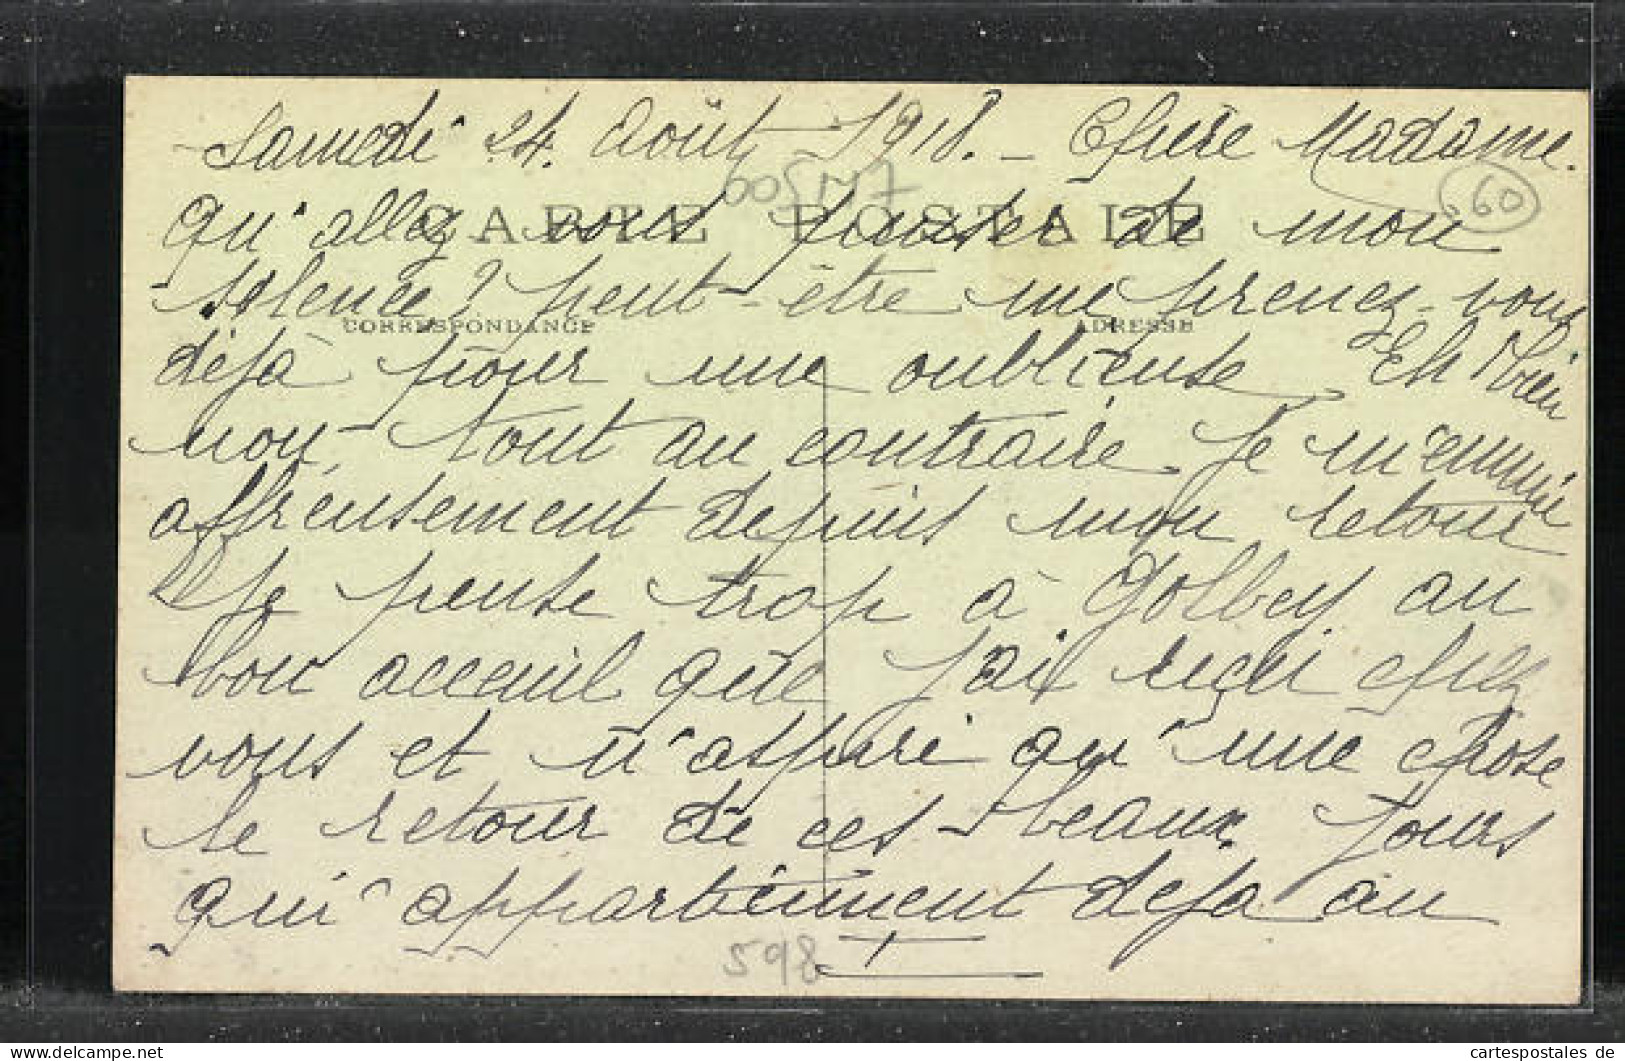 Samedi 24 Août 1918. – Chère Madame.
60517
60
CARTE POSTALE
Qu'allez vous penser de mon
silence? peut-être me prenez-vous
CORRESPONDANCE ADRESSE
déjà pour une oublieuse. Eh bien
non, tout au contraire. Je m'ennuie
affreusement depuis mon retour
Je pense trop à Golbey au
bon acceuil que j'ai reçu chez
vous et n'aspire qu'une chose
le retour de ces beaux jours
qui appartiennent deja au
598
cartespostales de